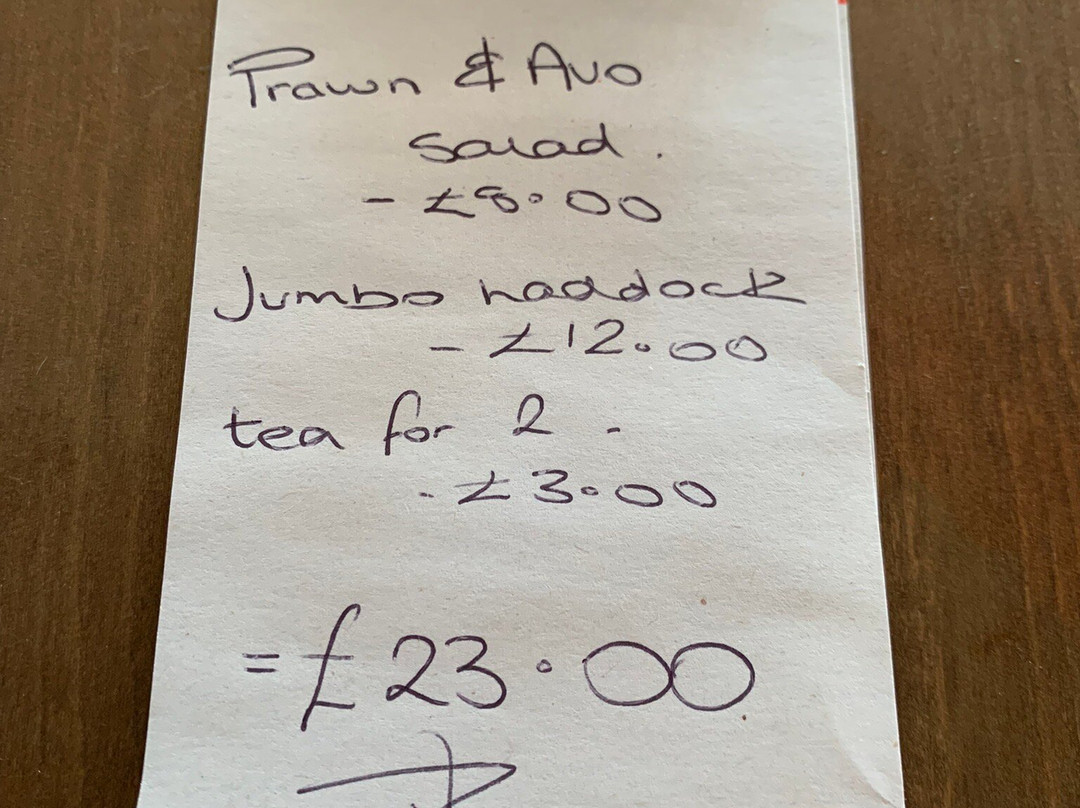 Prawn & Avo
Salad.
- £8.00
Jumbo haddock
- £12.00
tea for 2 -
- £3.00
= £23.00